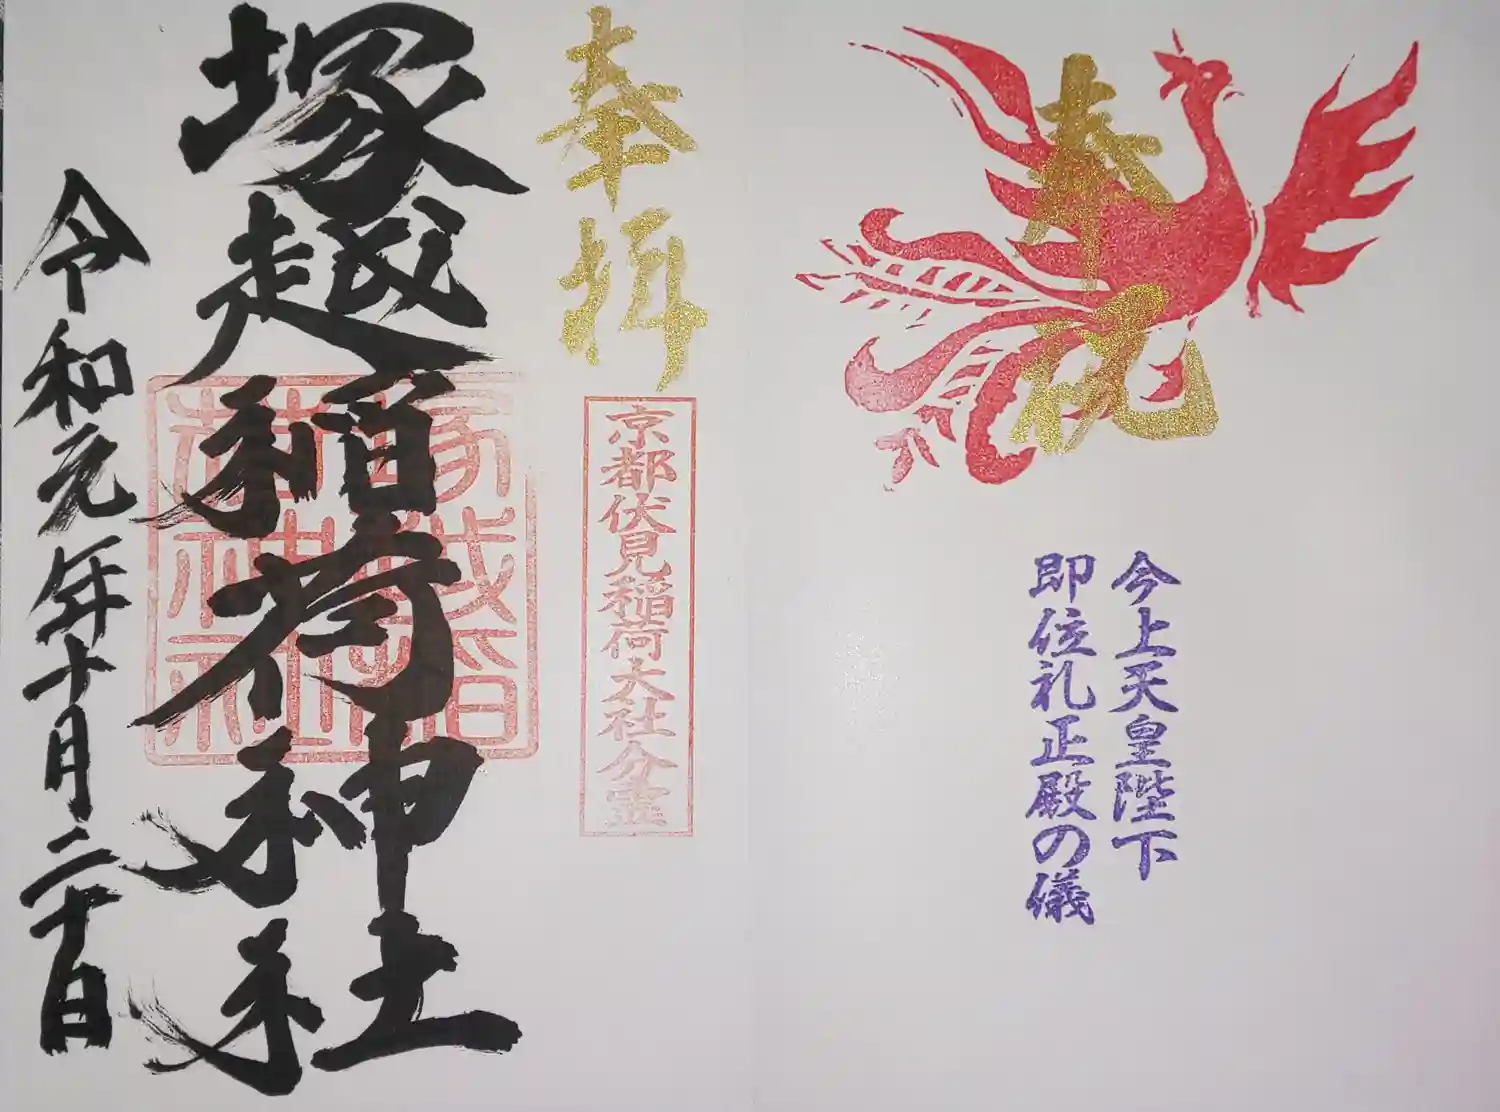 奉祝
今上天皇陛下
即位礼正殿の儀
奉拝
京都伏見稲荷大社分霊
塚越稲荷神社
令和元年十月二十日